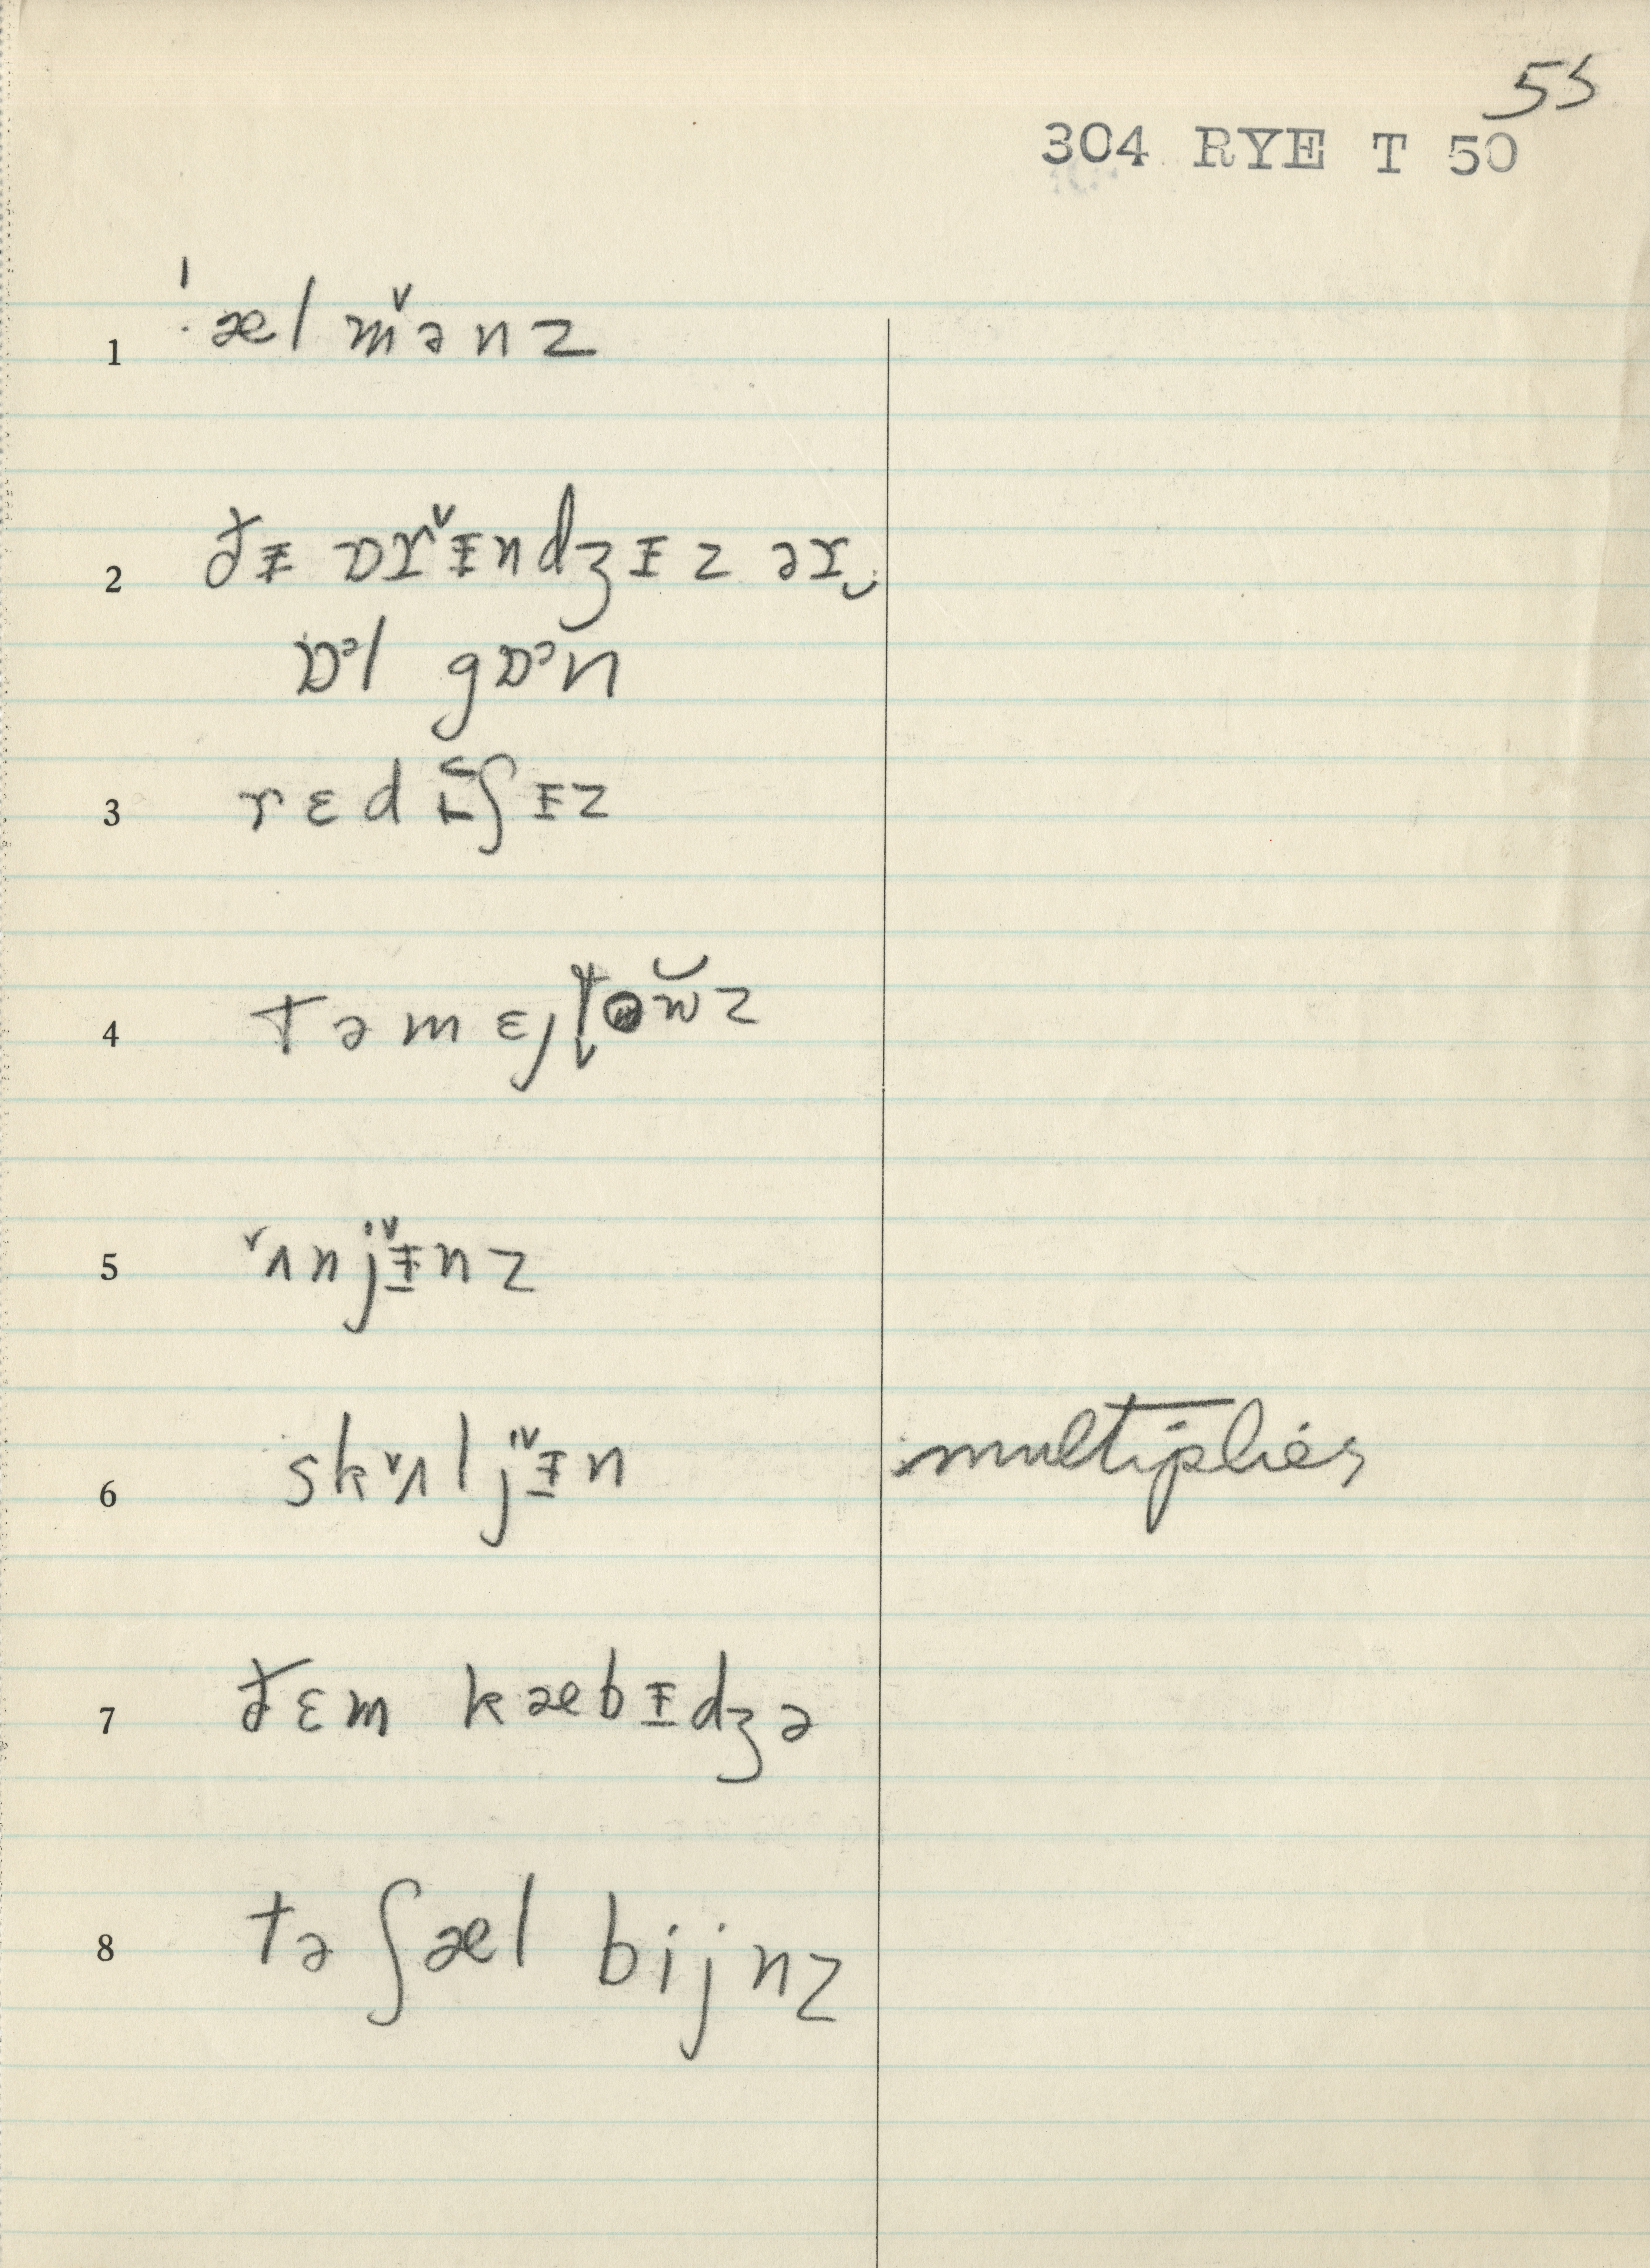 55
304 RYE T 50
1 ˈæl mə̌nz
2 ðɨ ɒr ̌ɨndʒɨz ər‿
ɒᵊl gɒᵊn
3 rɛd ɪʃɨz
4 təmɛjtəw̆z
5 ̌ʌnj ̌ɨnz
6 sk ̌ʌlj ̌ɨn multiplies
7 ðɛm kæbɨdʒə
8 tə ʃæl bijnz